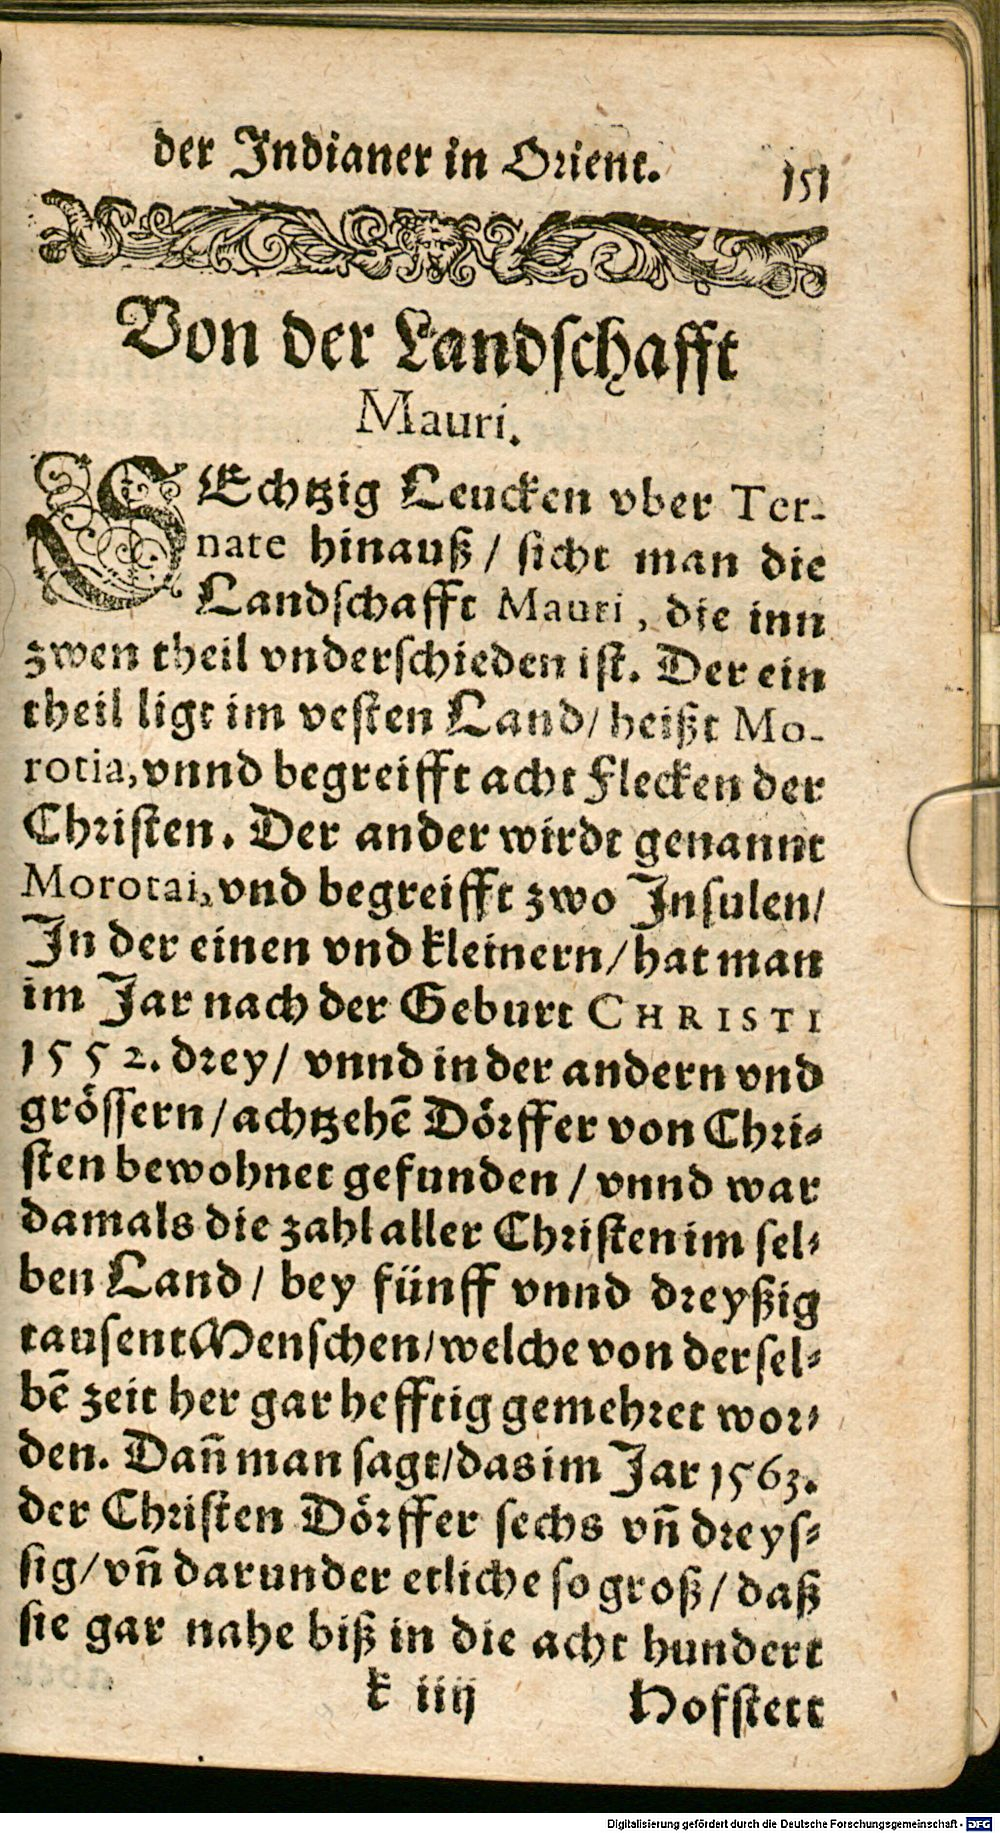 der Indianer in Orient.
151
Von der Landschafft
Mauri.
SEchtzig Leucken vber Ter-
nate hinauß / sicht man die
Landschafft Mauri, die inn
zwen theil vnderschieden ist. Der ein
theil ligt im vesten Land/ heißt Mo-
rotia, vnnd begreifft acht Flecken der
Christen. Der ander wirdt genannt
Morotai, vnd begreifft zwo Insulen/
In der einen vnd kleinern/ hat man
im Jar nach der Geburt CHRISTI
1552. drey/ vnnd in der andern vnd
grössern/ achtzehē Dörffer von Chri-
sten bewohnet gefunden / vnnd war
damals die zahl aller Christen im sel-
ben Land/ bey fünff vnnd dreyßig
tausent Menschen/ welche von der sel-
bē zeit her gar hefftig gemehret wor-
den. Dañ man sagt/ das im Jar 1563.
der Christen Dörffer sechs vñ dreys-
sig/ vñ darunder etliche so groß/ daß
sie gar nahe biß in die acht hundert
k iiij
Hofstett
Digitalisierung gefördert durch die Deutsche Forschungsgemeinschaft - DFG